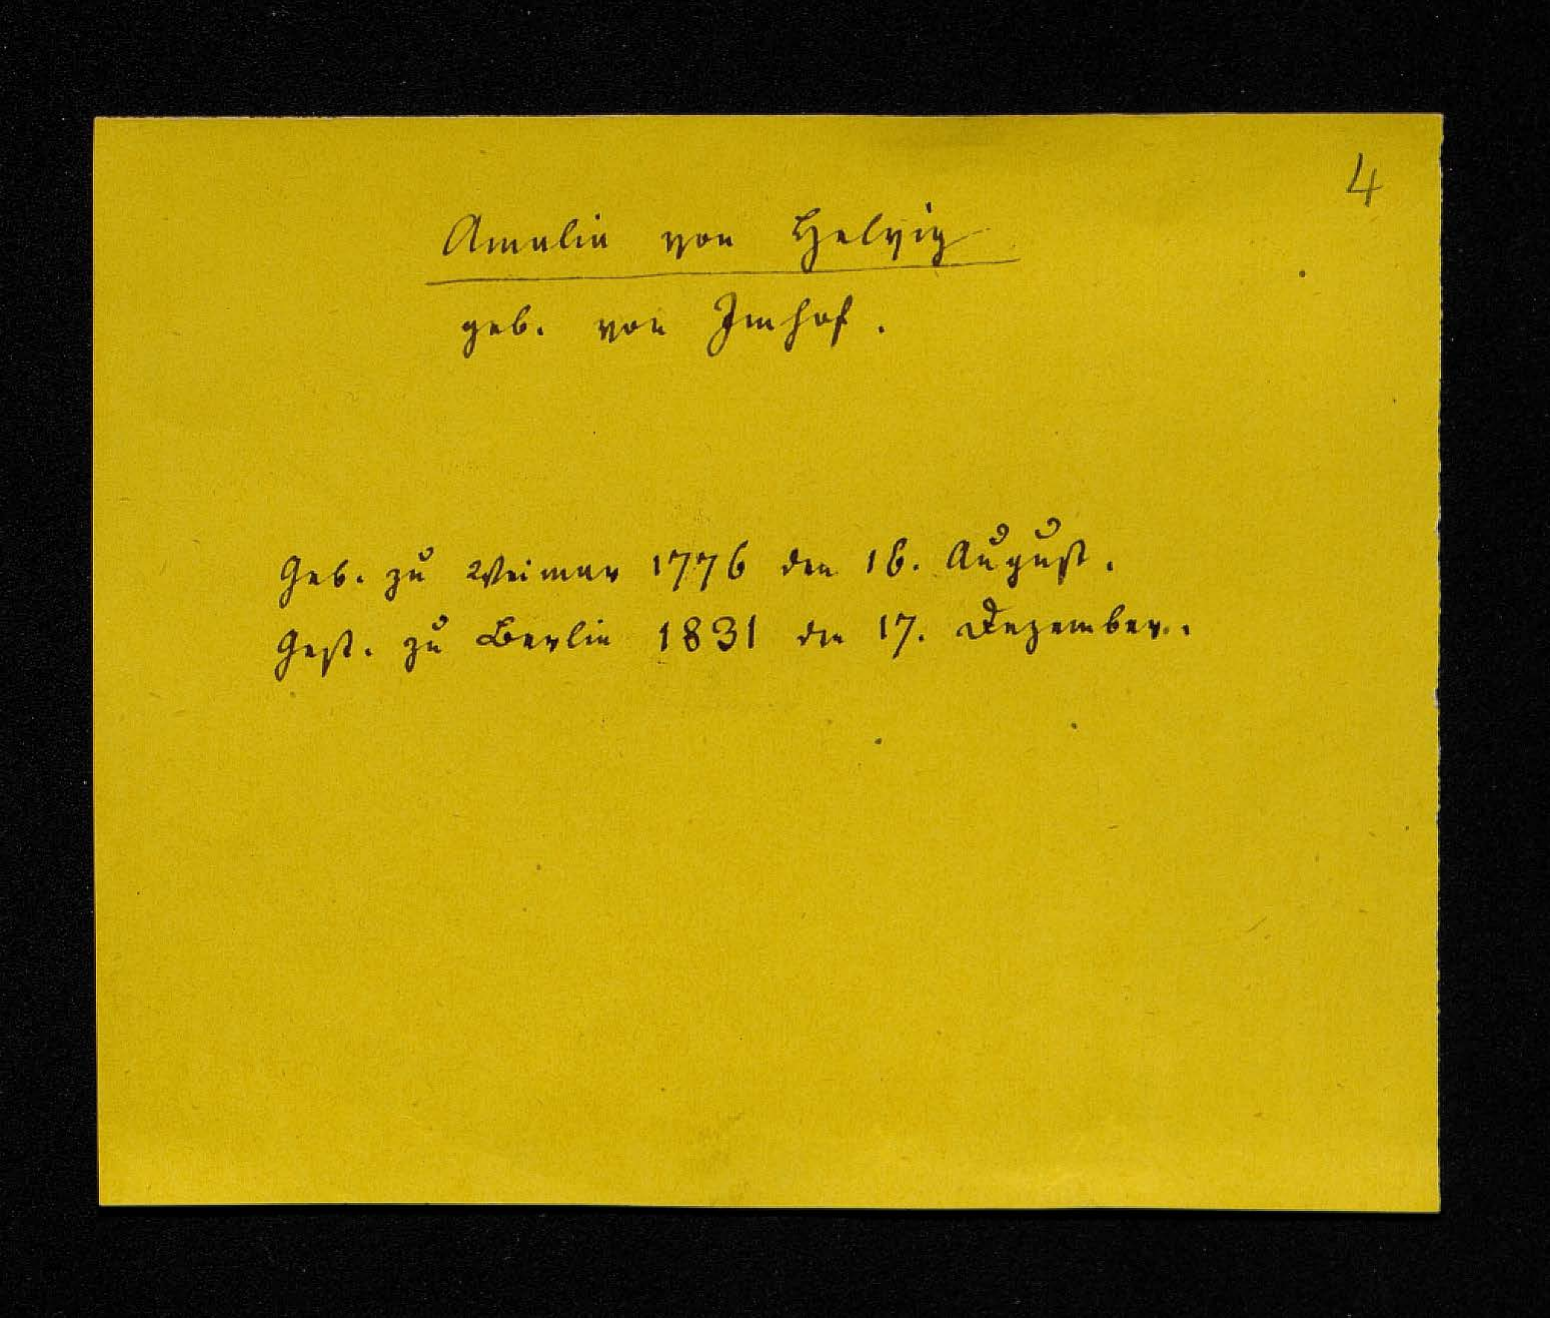 4
Amalie von Helvig
geb. von Imhof.
Geb. zu Weimar 1776 den 16. August.
Gest. zu Berlin 1831 den 17. Dezember.